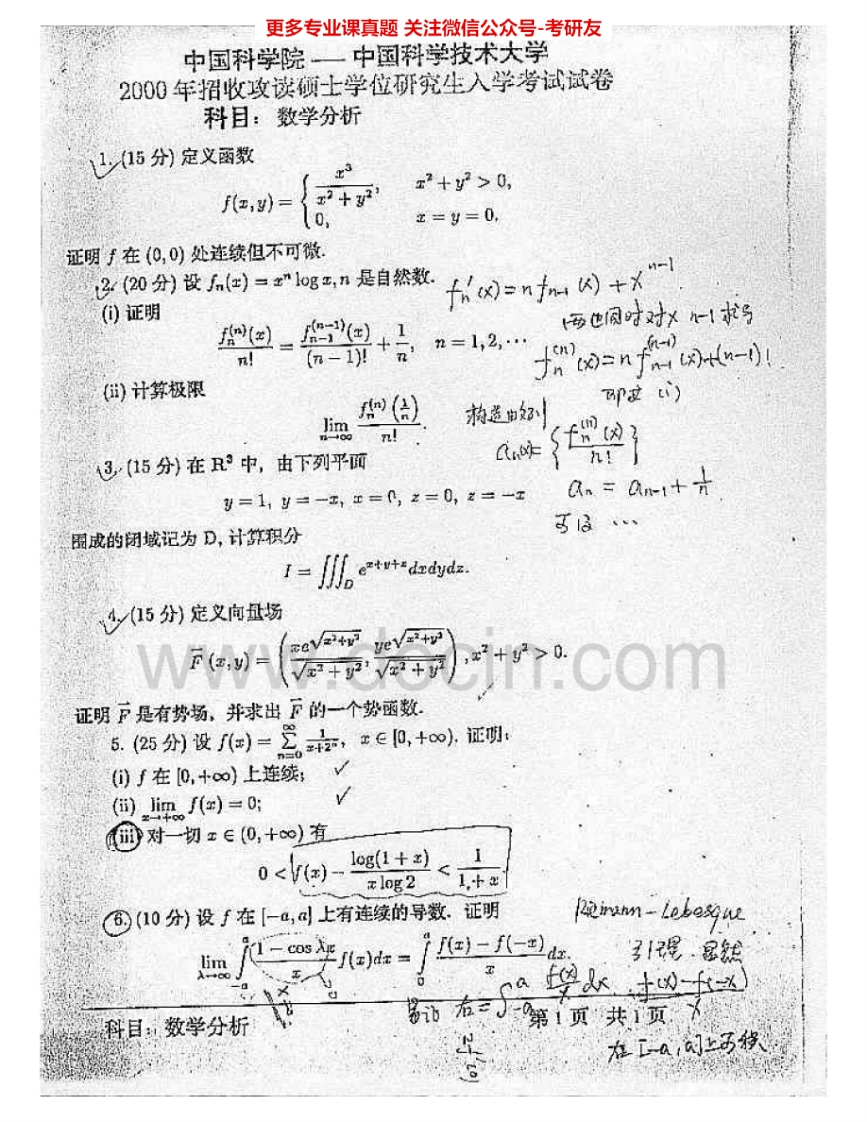 更多专业课真题 关注微信公众号-考研友
中国科学院 — 中国科学技术大学
2000 年招收攻读硕士学位研究生入学考试试卷
科目：数学分析
1. (15 分) 定义函数
f(x,y) = { x³/(x² + y²), x² + y² > 0,
0, x = y = 0.
证明 f 在 (0,0) 处连续但不可微.
2. (20 分) 设 fₙ(x) = xⁿ log x, n 是自然数.
fₙ'(x) = n fₙ₋₁(x) + xⁿ⁻¹
(i) 证明
两边同时对x n-1求导
fₙ⁽ⁿ⁾(x)/n! = fₙ₋₁⁽ⁿ⁻¹⁾(x)/(n − 1)! + 1/n, n = 1,2,⋯
fₙ⁽ⁿ⁾(x) = n fₙ₋₁⁽ⁿ⁻¹⁾(x) + (n−1)!
(ii) 计算极限
即证 (i)
lim n→∞ fₙ⁽ⁿ⁾(1/n)/n!.
aₙ(x) = { fₙ⁽ⁿ⁾(x)/n! }
3. (15 分) 在 R³ 中，由下列平面
aₙ = aₙ₋₁ + 1/n
y = 1, y = −x, x = 0, z = 0, z = −x
围成的闭域记为 D, 计算积分
I = ∭_D e^{x+y+z} dxdydz.
4. (15 分) 定义向量场
F⃗(x,y) = ( xe^{√(x²+y²)}/√(x² + y²), ye^{√(x²+y²)}/√(x² + y²) ), x² + y² > 0.
www.docin.com
证明 F⃗ 是有势场，并求出 F⃗ 的一个势函数.
5. (25 分) 设 f(x) = ∑_{n=0}^{∞} 1/(x+2ⁿ), x ∈ [0,+∞). 证明：
(i) f 在 [0,+∞) 上连续;
(ii) lim x→+∞ f(x) = 0;
(iii) 对一切 x ∈ (0,+∞) 有
0 < f(x) − log(1 + x)/(x log 2) < 1/(1 + x)
6. (10 分) 设 f 在 [−a,a] 上有连续的导数. 证明
Riemann-Lebesgue
lim λ→∞ ∫_{−a}^{a} (1 − cos λx)/x f(x)dx = ∫_0^a (f(x) − f(−x))/x dx.
引理. 显然
右 = ∫_{−a}^{a} f(x)/x dx. (f(x)−f(−x))/x
科目：数学分析
第 1 页 共 1 页
在 [−a,a]上可积